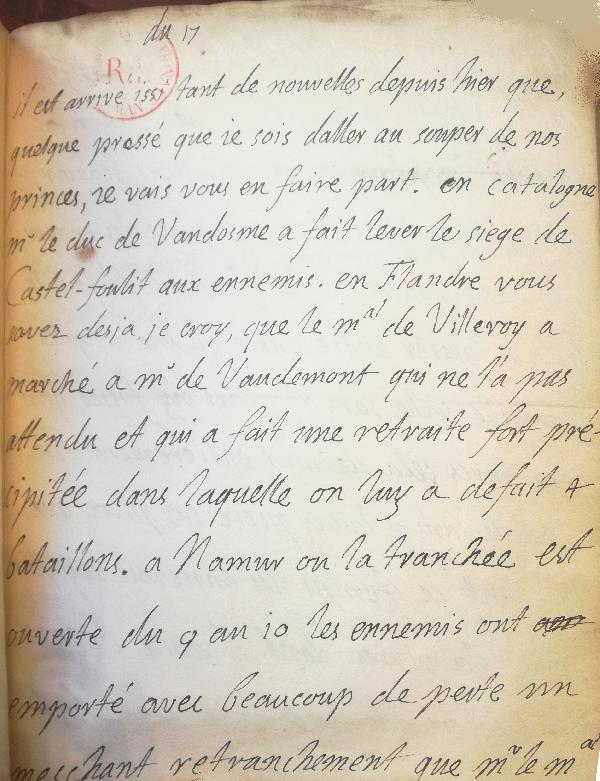 du 17
il est arrivé issi tant de nouvelles depuis hier que,
quelque pressé que ie sois daller au souper de nos
princes, ie vais vous en faire part. en catalogne
mr le duc de Vandosme a fait lever le siege de
Castel-foulit aux ennemis. en Flandre vous
savez desja, je croy, que le mal de Villeroy a
marché a mr de Vaudemont qui ne l'a pas
attendu et qui a fait une retraite fort pré-
cipitée dans laquelle on luy a defait 4
bataillons. a Namur ou la tranchée est
ouverte du 9 au 10 les ennemis ont
emporté avec beaucoup de perte un
meschant retranchement que mr le mal